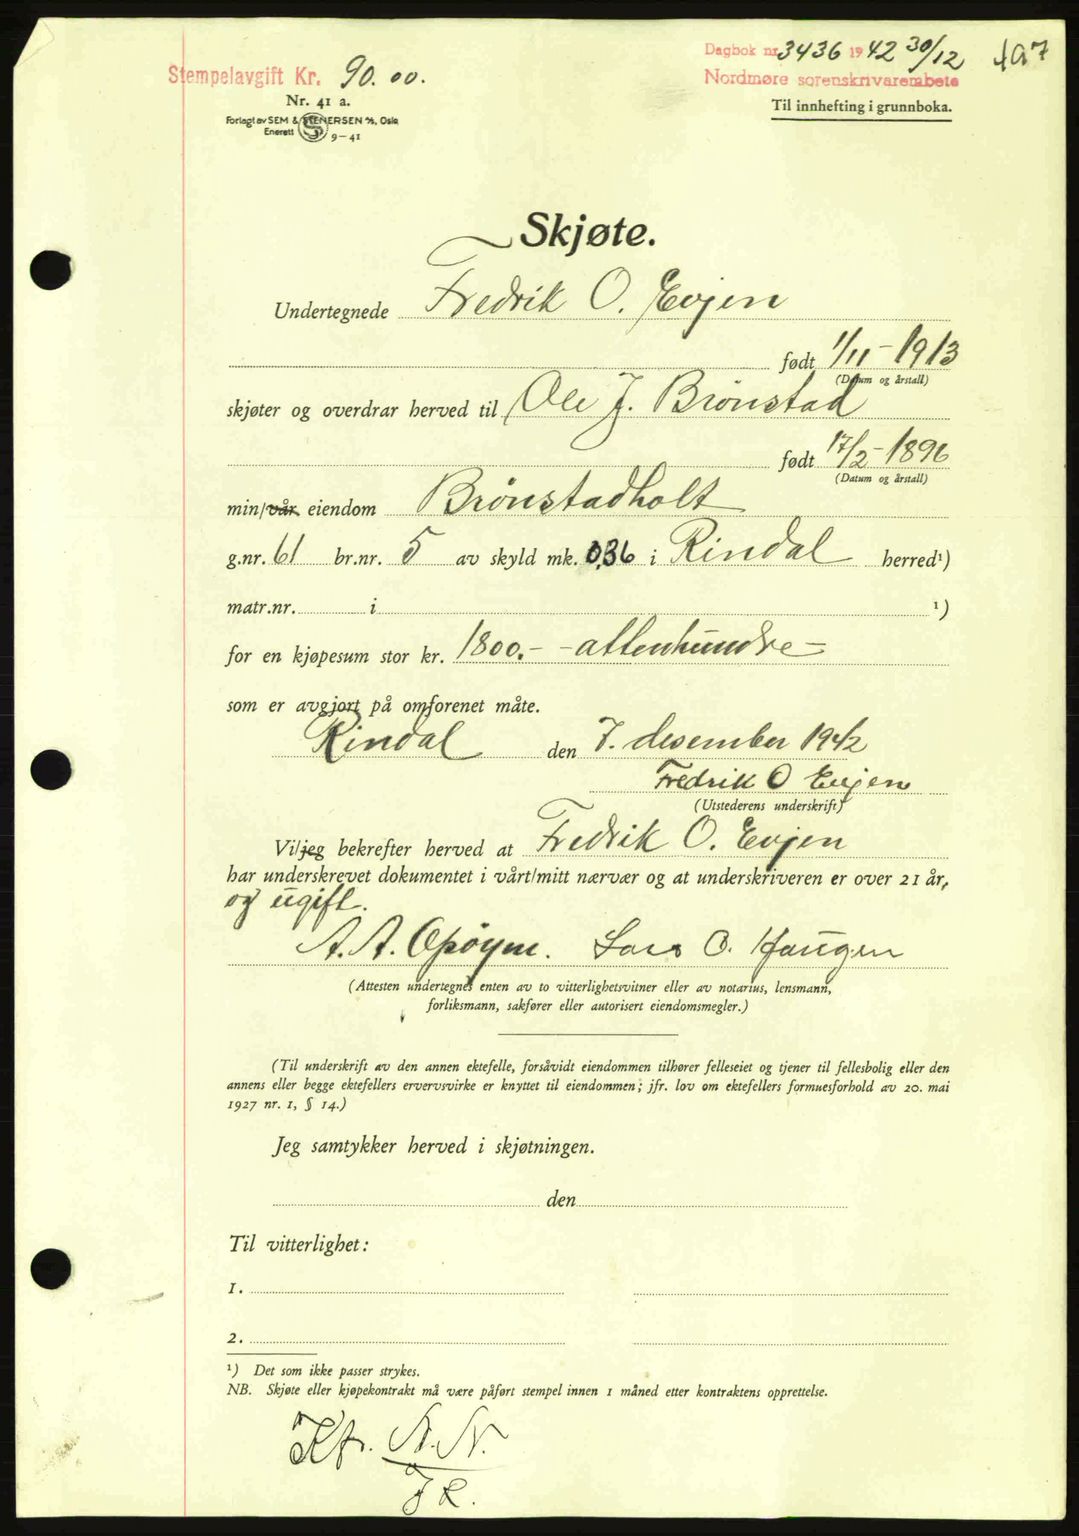 Dagbok nr. 3436 1942 30/12 197
Stempelavgift Kr. 90.00.
Nordmøre sorenskriverembete
Nr. 41 a.
Til innhefting i grunnboka.
Forlagt av SEM & STENERSEN A/S, Oslo
Enerett 9-41
Skjøte.
Undertegnede Fredrik O. Evjen
født 1/11-1913
(Datum og årstall)
skjøter og overdrar herved til Ole J. Brønstad
født 17/2-1896
(Datum og årstall)
min/vår eiendom Brønstadholt
g.nr. 61 br.nr. 5 av skyld mk. 0,36 i Rindal herred¹)
matr.nr. i ¹)
for en kjøpesum stor kr. 1800.- -attenhundre-
som er avgjort på omforenet måte.
Rindal den 7. desember 1942
Fredrik O Evjen
(Utstederens underskrift)
Vi/jeg bekrefter herved at Fredrik O. Evjen
har underskrevet dokumentet i vårt/mitt nærvær og at underskriveren er over 21 år,
og ugift.
A. A. Opøyen. Lars O. Haugen
(Attesten undertegnes enten av to vitterlighetsvitner eller av notarius, lensmann,
forliksmann, sakfører eller autorisert eiendomsmegler.)
(Til underskrift av den annen ektefelle, forsåvidt eiendommen tilhører felleseiet og tjener til fellesbolig eller den
annens eller begge ektefellers ervervsvirke er knyttet til eiendommen; jfr. lov om ektefellers formuesforhold av 20. mai
1927 nr. 1, § 14.)
Jeg samtykker herved i skjøtningen.
den
Til vitterlighet:
1.
2.
¹) Det som ikke passer strykes.
NB. Skjøte eller kjøpekontrakt må være påført stempel innen 1 måned etter kontraktens opprettelse.
Kfr. N. N.